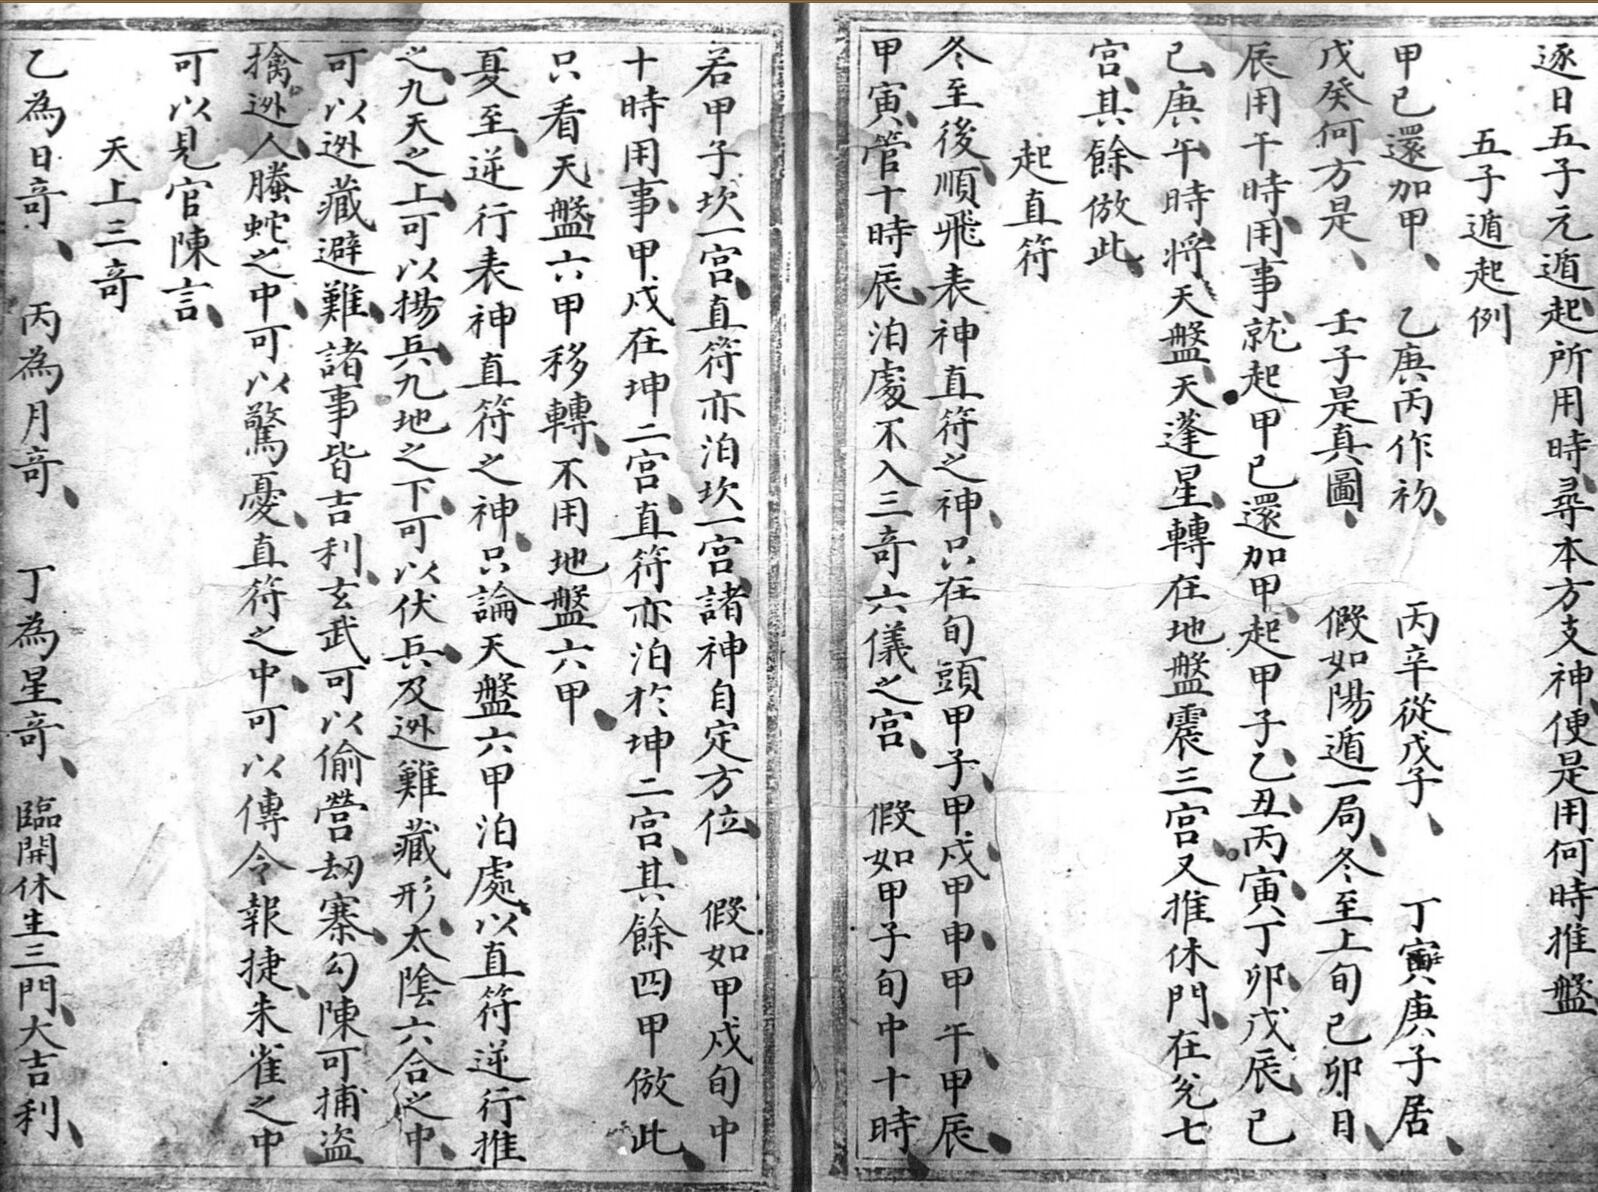 逐日五子元遁起所用時尋本方支神便是用何時推盤
五子遁起例
甲己還加甲、 乙庚丙作初、 丙辛從戊子、 丁壬庚子居、
戊癸何方是、 壬子是真圖、 假如陽遁一局冬至上旬己卯日、
辰用午時用事就起甲己還加甲起甲子乙丑丙寅丁卯戊辰己
巳庚午時將天盤天蓬星轉在地盤震三宮又推休門在兌七
宮其餘倣此、
起直符
冬至後順飛表神直符之神只在旬頭甲子甲戍甲申甲午甲辰
甲寅管十時辰泊處不入三奇六儀之宮、 假如甲子旬中十時
若甲子坎一宮直符亦泊坎一宮諸神自定方位、 假如甲戍旬中
十時用事甲戍在坤二宮直符亦泊於坤二宮其餘四甲倣此、
只看天盤六甲移轉不用地盤六甲
夏至逆行表神直符之神只論天盤六甲泊處以直符逆行推
之九天之上可以揚兵九地之下可以伏兵及迯難藏形太陰六合之中
可以迯藏避難諸事皆吉利玄武可以偷營刼寨勾陳可捕盗
擒迯人螣蛇之中可以驚憂直符之中可以傳令報捷朱雀之中
可以見官陳言、
天上三竒
乙為日竒、 丙為月竒、 丁為星竒、 臨開休生三門大吉利、